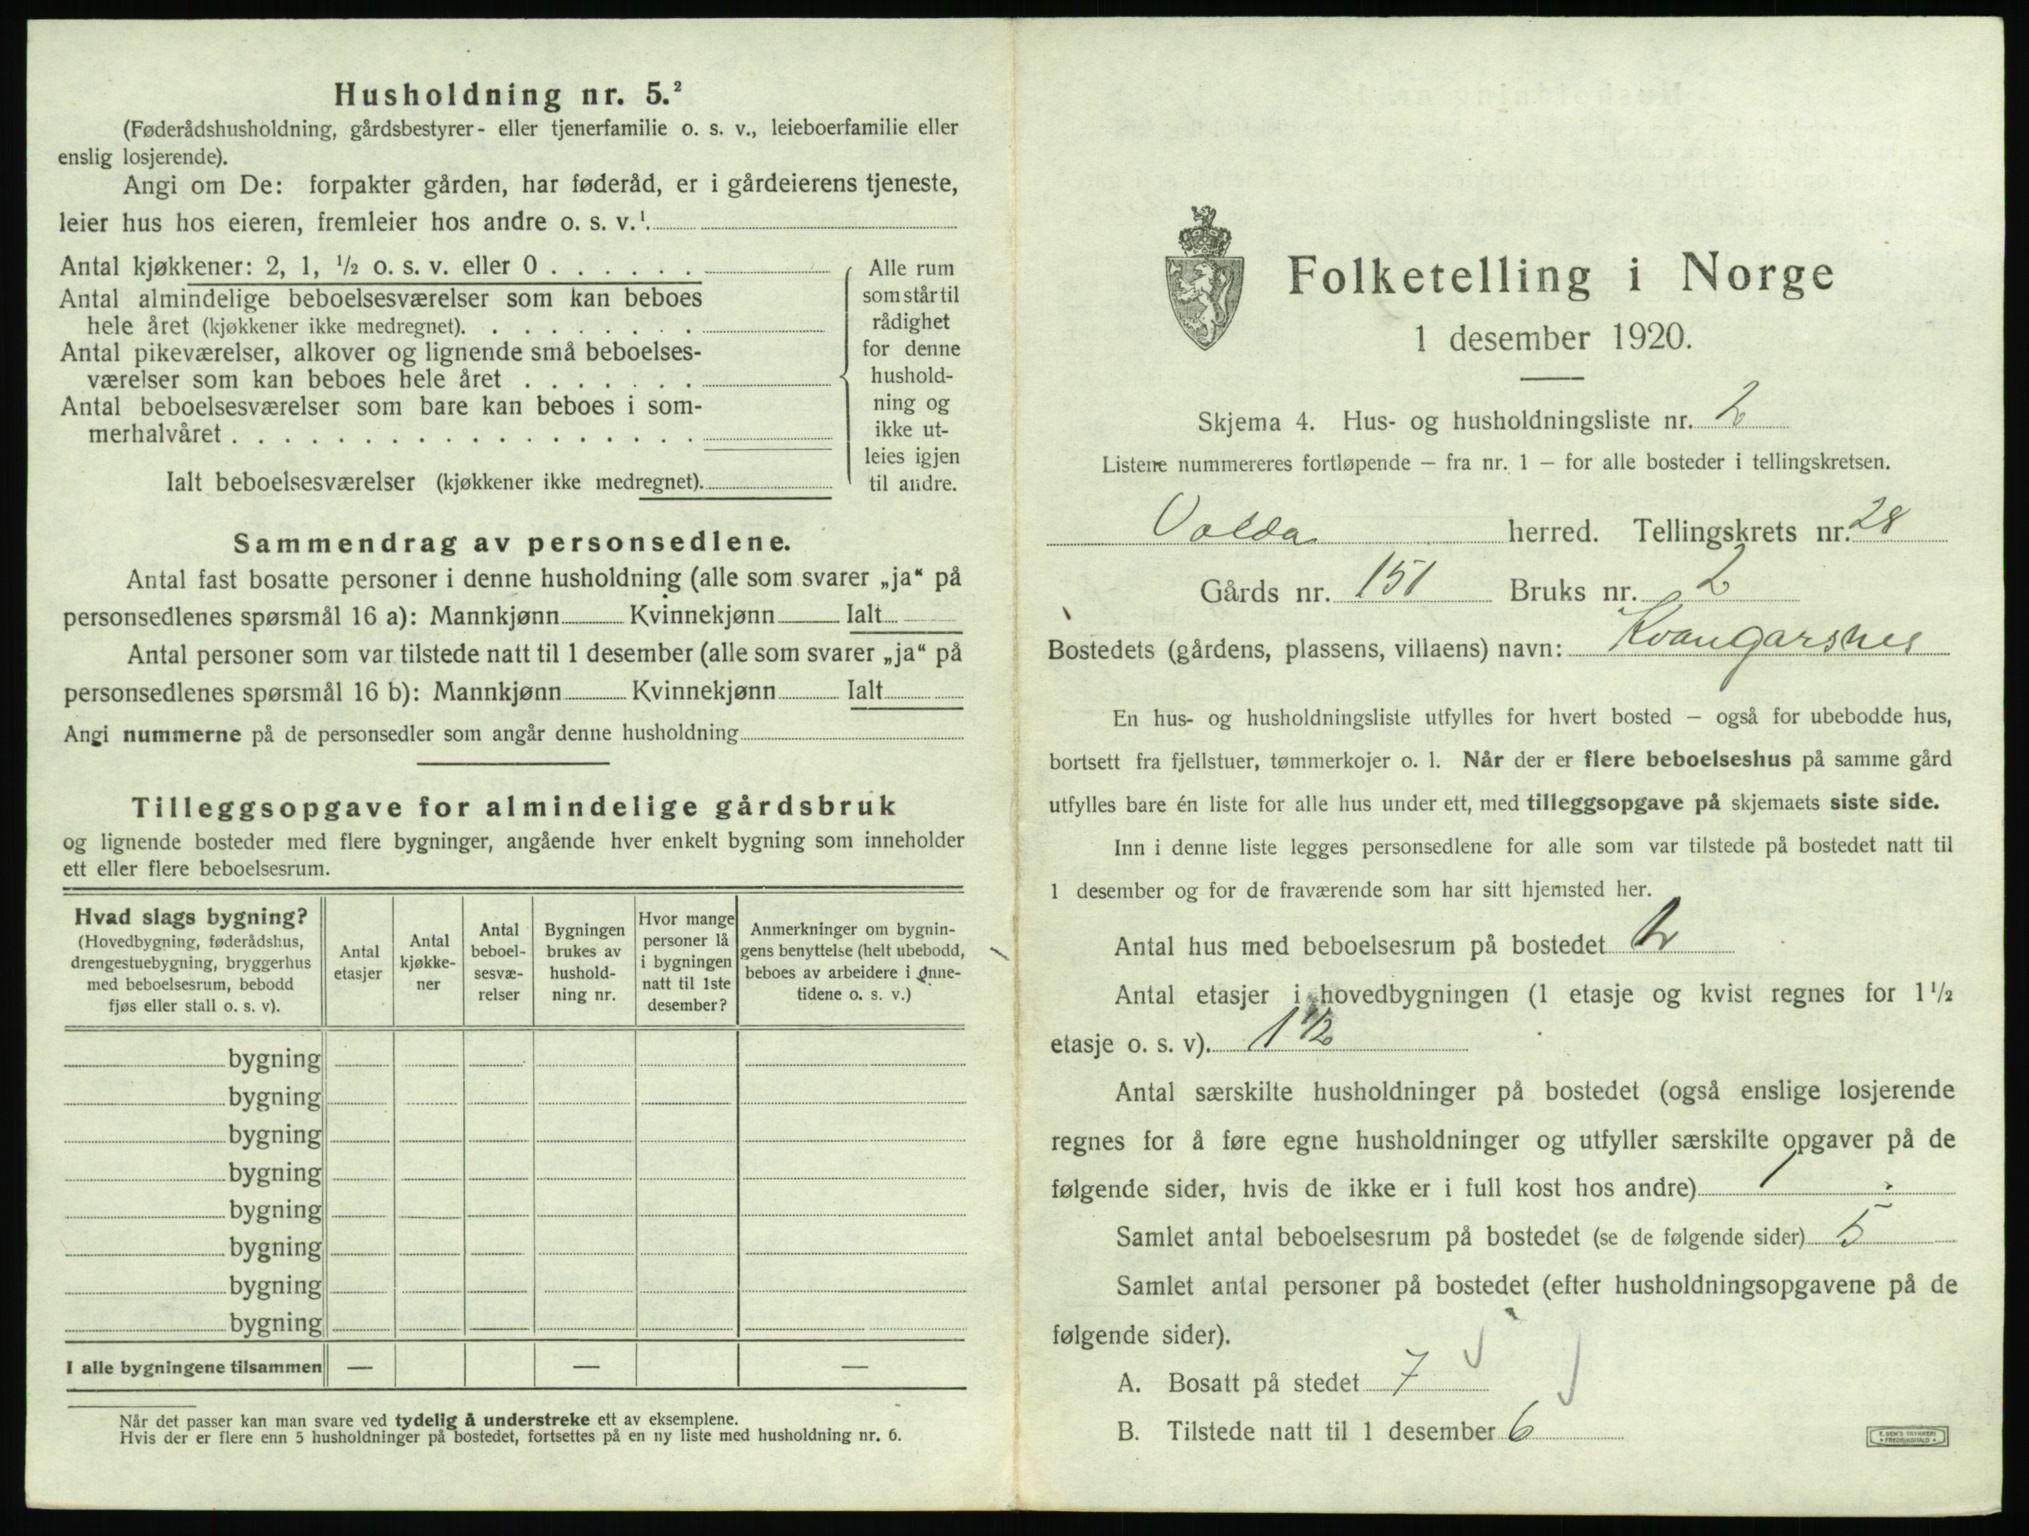 Husholdning nr. 5.²
(Føderådshusholdning, gårdsbestyrer- eller tjenerfamilie o. s. v., leieboerfamilie eller
enslig losjerende).
Angi om De: forpakter gården, har føderåd, er i gårdeierens tjeneste,
leier hus hos eieren, fremleier hos andre o. s. v.¹
Antal kjøkkener: 2, 1, ½ o. s. v. eller 0
Antal almindelige beboelsesværelser som kan beboes
hele året (kjøkkener ikke medregnet).
Antal pikeværelser, alkover og lignende små beboelses-
værelser som kan beboes hele året
Antal beboelsesværelser som bare kan beboes i som-
merhalvåret
Ialt beboelsesværelser (kjøkkener ikke medregnet).
Alle rum
som står til
rådighet
for denne
hushold-
ning og
ikke ut-
leies igjen
til andre.
Sammendrag av personsedlene.
Antal fast bosatte personer i denne husholdning (alle som svarer „ja“ på
personsedlenes spørsmål 16 a): Mannkjønn Kvinnekjønn Ialt
Antal personer som var tilstede natt til 1 desember (alle som svarer „ja“ på
personsedlenes spørsmål 16 b): Mannkjønn Kvinnekjønn Ialt
Angi nummerne på de personsedler som angår denne husholdning
Tilleggsopgave for almindelige gårdsbruk
og lignende bosteder med flere bygninger, angående hver enkelt bygning som inneholder
ett eller flere beboelsesrum.
Hvad slags bygning?
(Hovedbygning, føderådshus,
drengestuebygning, bryggerhus
med beboelsesrum, bebodd
fjøs eller stall o. s. v).
Antal
etasjer
Antal
kjøkke-
ner
Antal
beboel-
sesvæ-
relser
Bygningen
brukes av
hushold-
ning nr.
Hvor mange
personer lå
i bygningen
natt til 1ste
desember?
Anmerkninger om bygnin-
gens benyttelse (helt ubebodd,
beboes av arbeidere i onne-
tidene o. s. v.)
bygning
bygning
bygning
bygning
bygning
bygning
bygning
bygning
I alle bygningene tilsammen — — —
Når det passer kan man svare ved tydelig å understreke ett av eksemplene.
Hvis der er flere enn 5 husholdninger på bostedet, fortsettes på en ny liste med husholdning nr. 6.
Folketelling i Norge
1 desember 1920.
Skjema 4. Hus- og husholdningsliste nr. 2
Listene nummereres fortløpende – fra nr. 1 – for alle bosteder i tellingskretsen.
Volda herred. Tellingskrets nr. 28
Gårds nr. 151 Bruks nr. 2
Bostedets (gårdens, plassens, villaens) navn: Kvangarsnes
En hus- og husholdningsliste utfylles for hvert bosted – også for ubebodde hus,
bortsett fra fjellstuer, tømmerkojer o. l. Når der er flere beboelseshus på samme gård
utfylles bare én liste for alle hus under ett, med tilleggsopgave på skjemaets siste side.
Inn i denne liste legges personsedlene for alle som var tilstede på bostedet natt til
1 desember og for de fraværende som har sitt hjemsted her.
Antal hus med beboelsesrum på bostedet 2
Antal etasjer i hovedbygningen (1 etasje og kvist regnes for 1 ½
etasje o. s. v). 1 ½
Antal særskilte husholdninger på bostedet (også enslige losjerende
regnes for å føre egne husholdninger og utfyller særskilte opgaver på de
følgende sider, hvis de ikke er i full kost hos andre) 1
Samlet antal beboelsesrum på bostedet (se de følgende sider) 5
Samlet antal personer på bostedet (efter husholdningsopgavene på de
følgende sider).
A. Bosatt på stedet 7
B. Tilstede natt til 1 desember 6